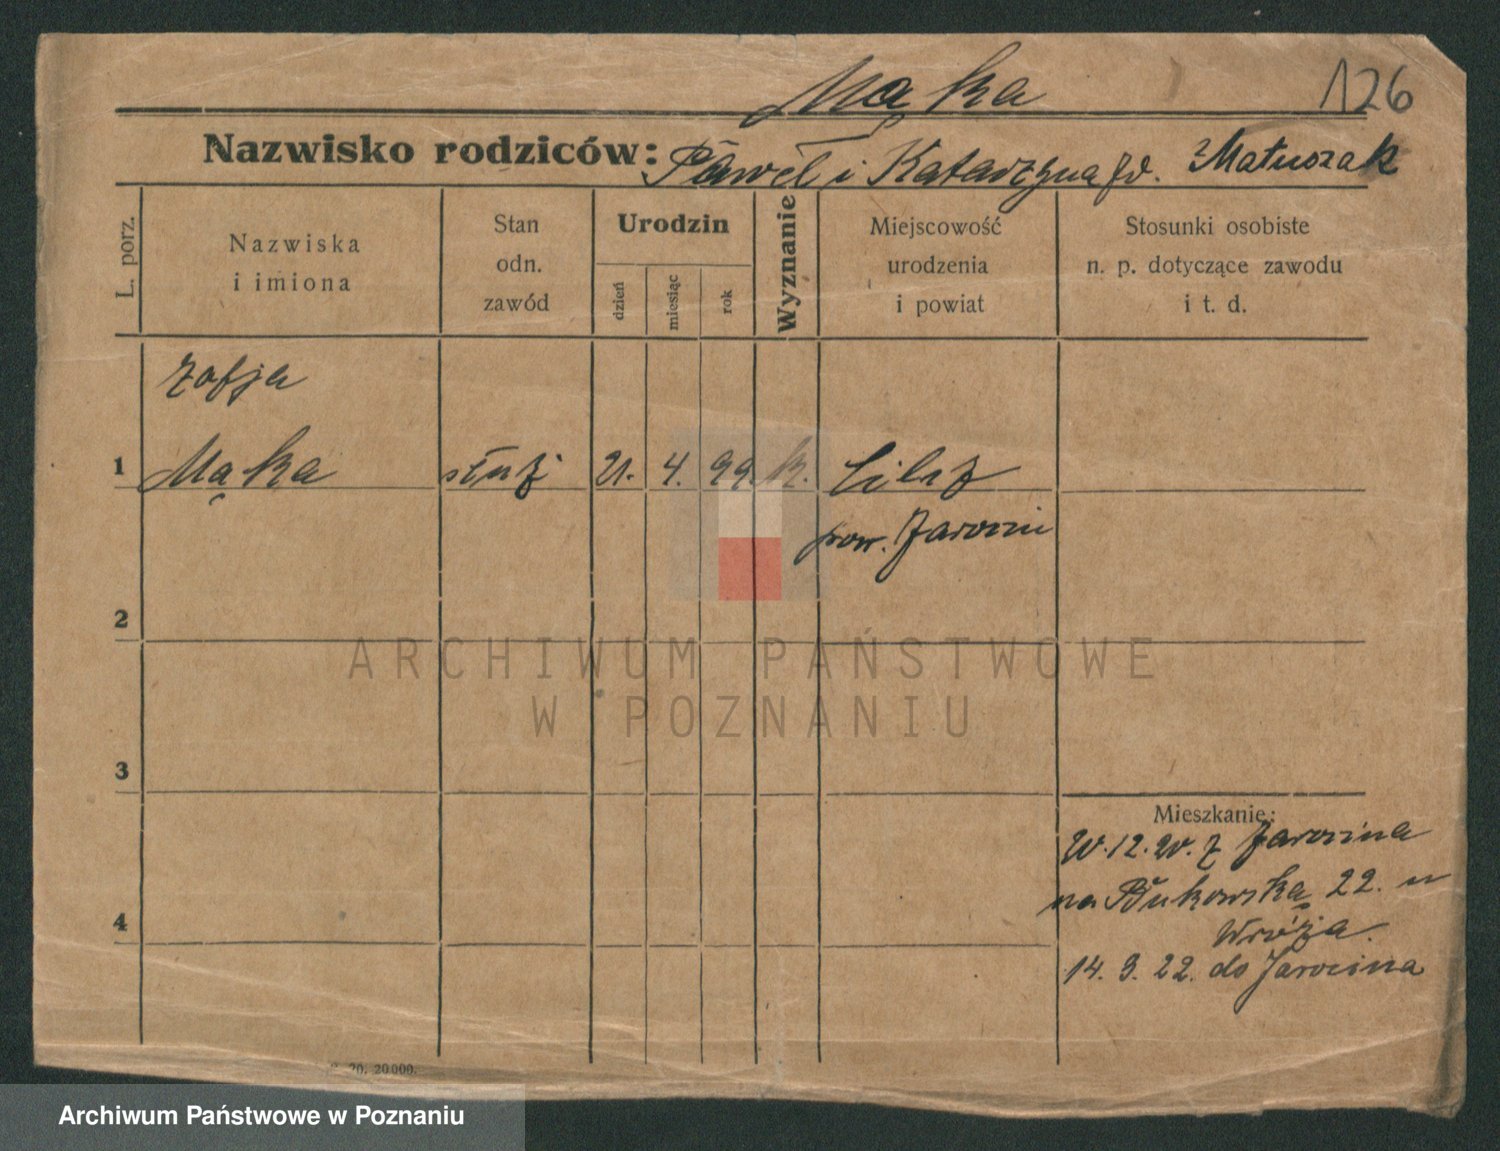 Mąka
126
Nazwisko rodziców: Paweł i Katarzyna zd. Matuszak
L. porz.
Nazwiska
i imiona
Stan
odn.
zawód
Urodzin
dzień
miesiąc
rok
Wyznanie
Miejscowość
urodzenia
i powiat
Stosunki osobiste
n. p. dotyczące zawodu
i t. d.
Zofja
1 Mąka służ 21. 4. 99. k.
pow. Jarocin
2
3
4
Mieszkanie:
12. 20. z Jarocina
na Bukowską 22. u
Wróża.
14. 3. 22. do Jarocina
20. 20000.
ARCHIWUM PAŃSTWOWE
W POZNANIU
Archiwum Państwowe w Poznaniu